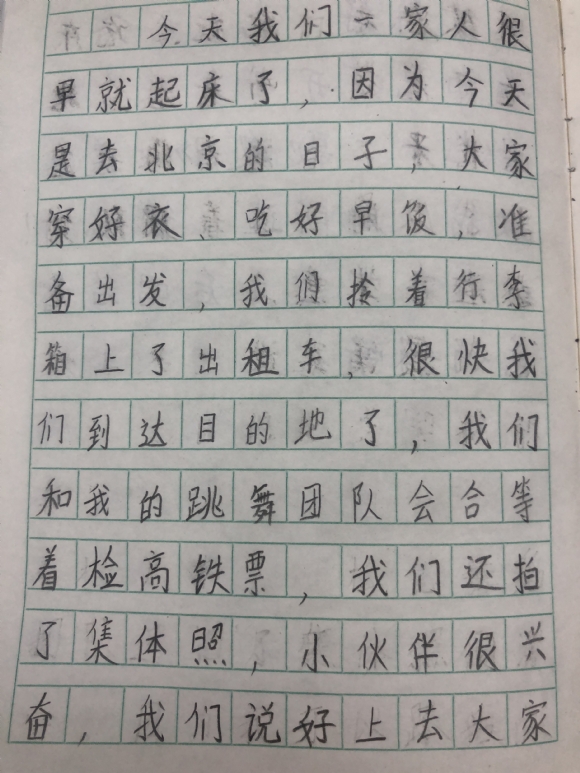 今天我们一家人很
早就起床了，因为今天
是去北京的日子，大家
穿好衣、吃好早饭，准
备出发，我们拎着行李
箱上了出租车，很快我
们到达目的地了，我们
和我的跳舞团队会合等
着检高铁票，我们还拍
了集体照，小伙伴很兴
奋，我们说好上去大家